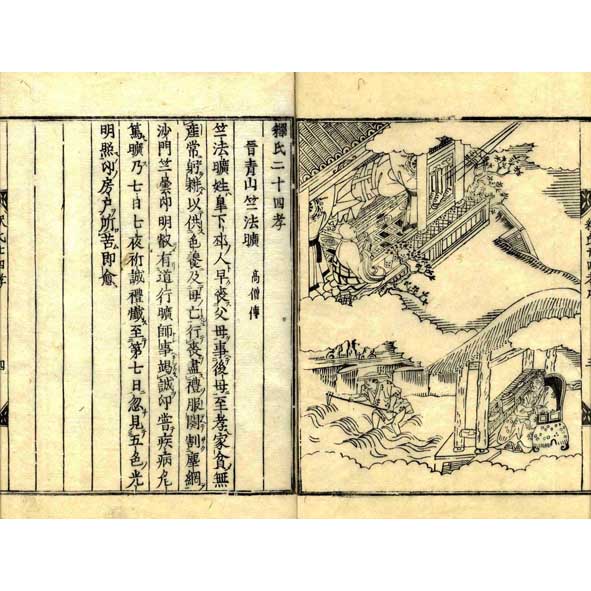 釋氏二十四孝
晉青山竺法曠 高僧傳
竺法曠姓臯下邳人早喪父母事後母至孝家貧無
産常躬耕以供色養及母亡行喪盡禮服闋剃塵網
沙門竺曇印明叡有道行曠師事竭誠印嘗疾病危
篤曠乃七日七夜祈誠禮懺至第七日忽見五色光
明照印房戶所苦即愈
四